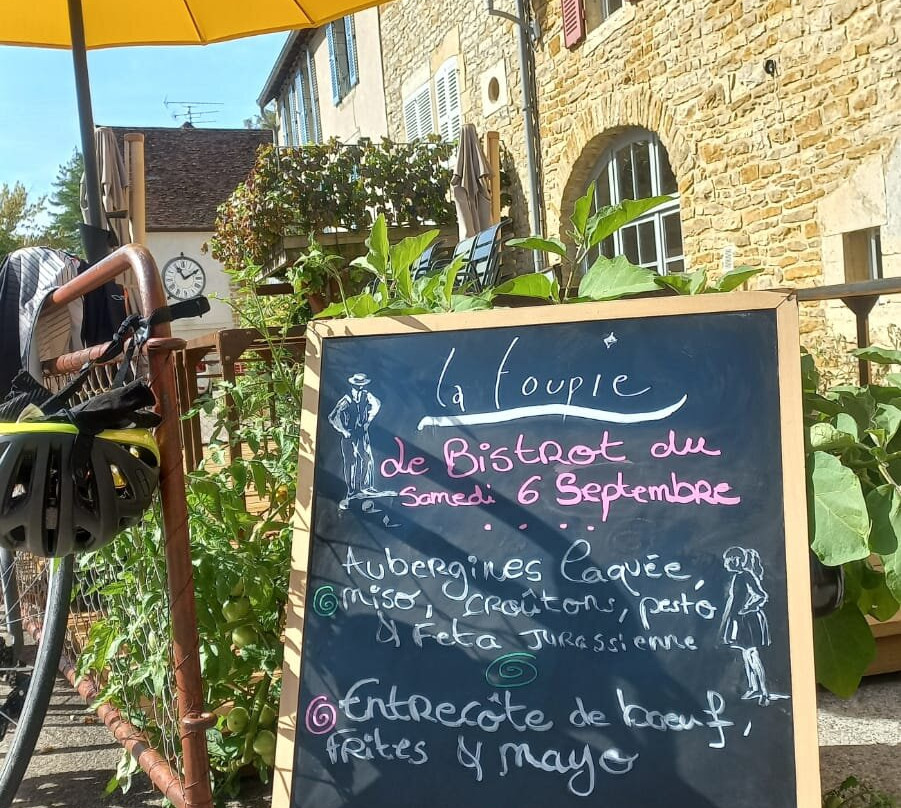 la Toupie
Le Bistrot du
Samedi 6 Septembre
Aubergines laquée,
miso, croûtons, pesto
& Feta Jurassienne
Entrecôte de boeuf,
frites & mayo